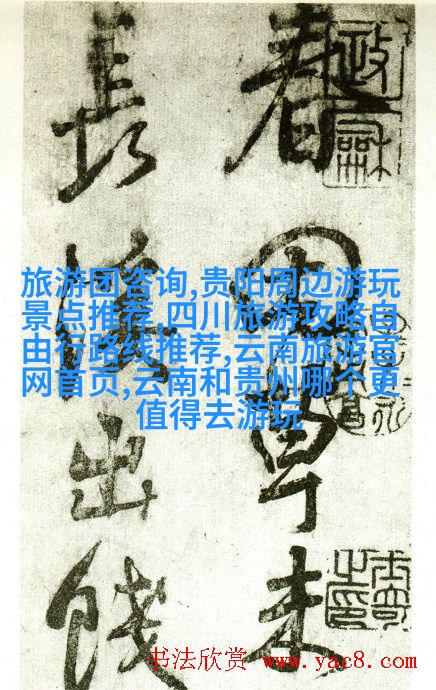 旅游团咨询,贵阳周边游玩
景点推荐,四川旅游攻略自
由行路线推荐,云南旅游官
网首页,云南和贵州哪个更
值得去游玩
草未
長
出餞
政龢
书法欣赏 www.yac8.com